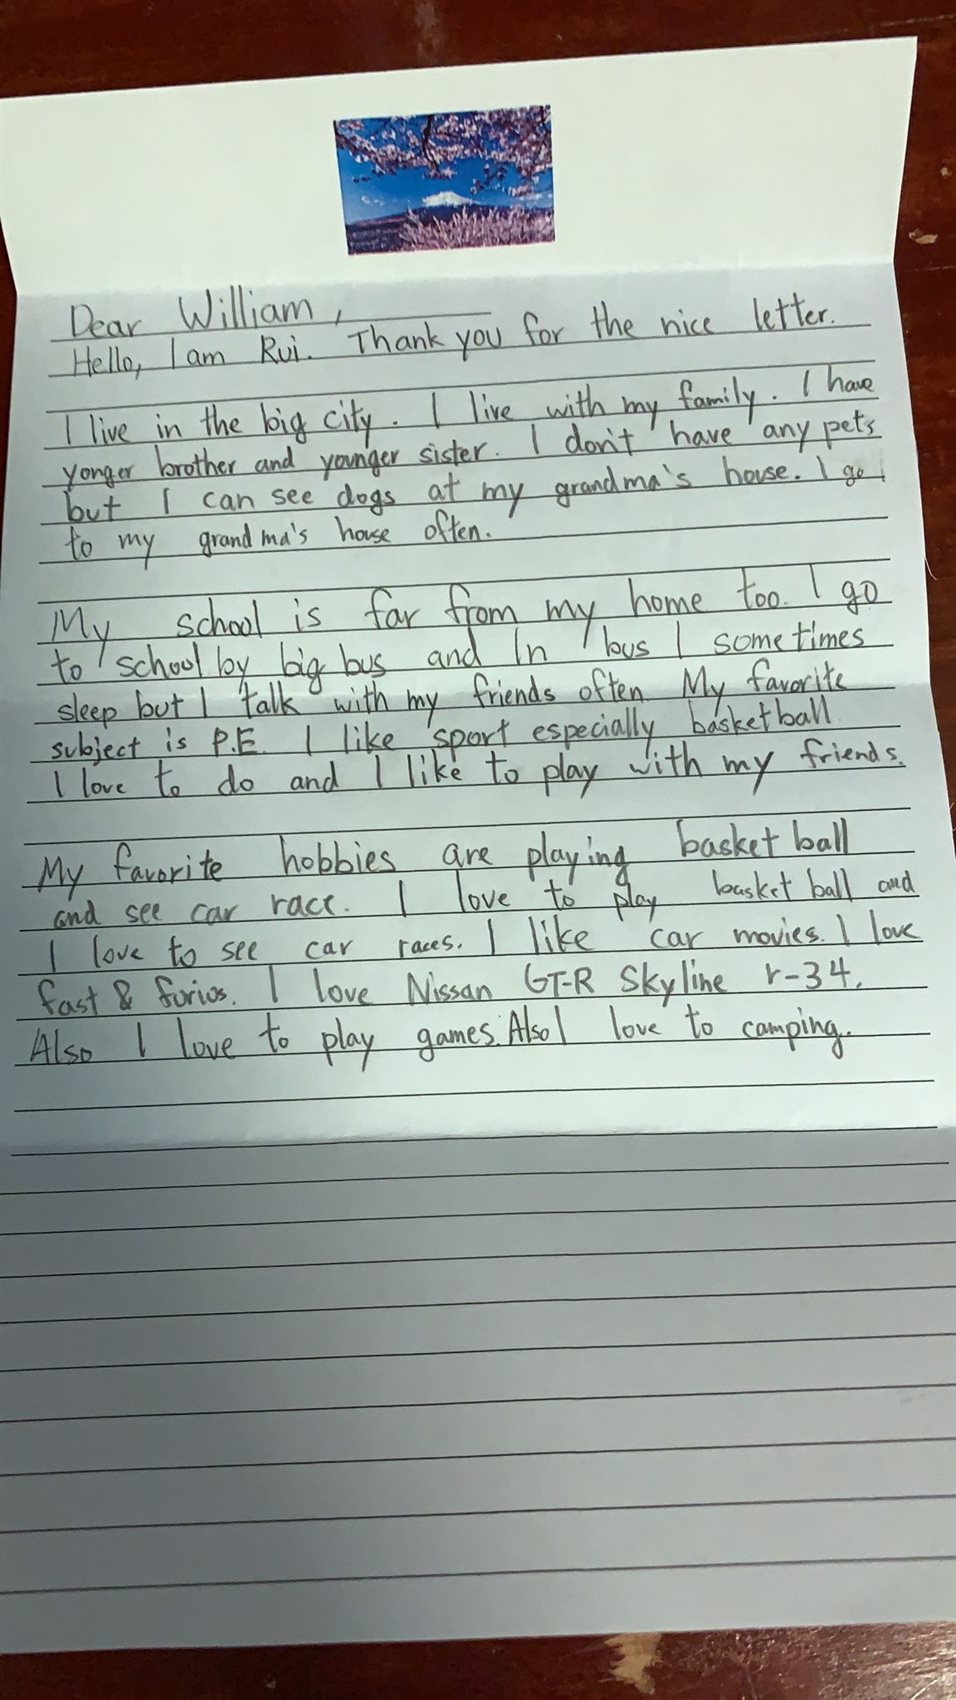 Dear William,
Hello, I am Rui. Thank you for the nice letter.
I live in the big city. I live with my family. I have
yonger brother and younger sister. I don't have any pets
but I can see dogs at my grandma's house. I go
to my grandma's house often.
My school is far from my home too. I go
to school by big bus and In bus I sometimes
sleep but I talk with my friends often My favorite
subject is P.E. I like sport especially basketball
I love to do and I like to play with my friends.
My favorite hobbies are playing basket ball
and see car race. I love to play basket ball and
I love to see car races. I like car movies. I love
fast & forios. I love Nissan GT-R Skyline r-34.
Also I love to play games. Also I love to camping.